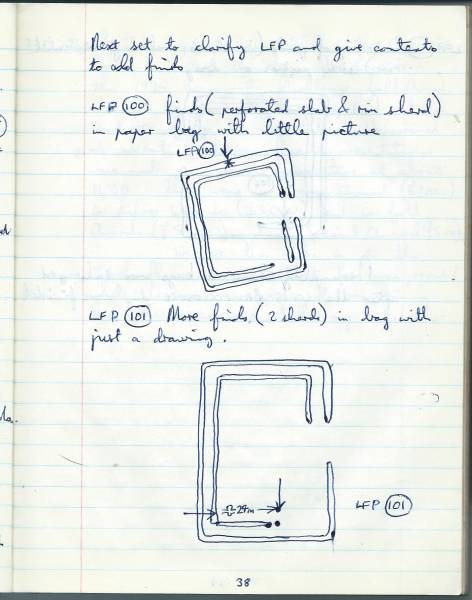 Next set to clarify LFP and give contexts
to odd finds
LFP 100 finds (perforated slab & rim sherd)
in paper bag with little picture
LFP 100
LFP 101 More finds (2 sherds) in bag with
just a drawing.
LFP 101
38